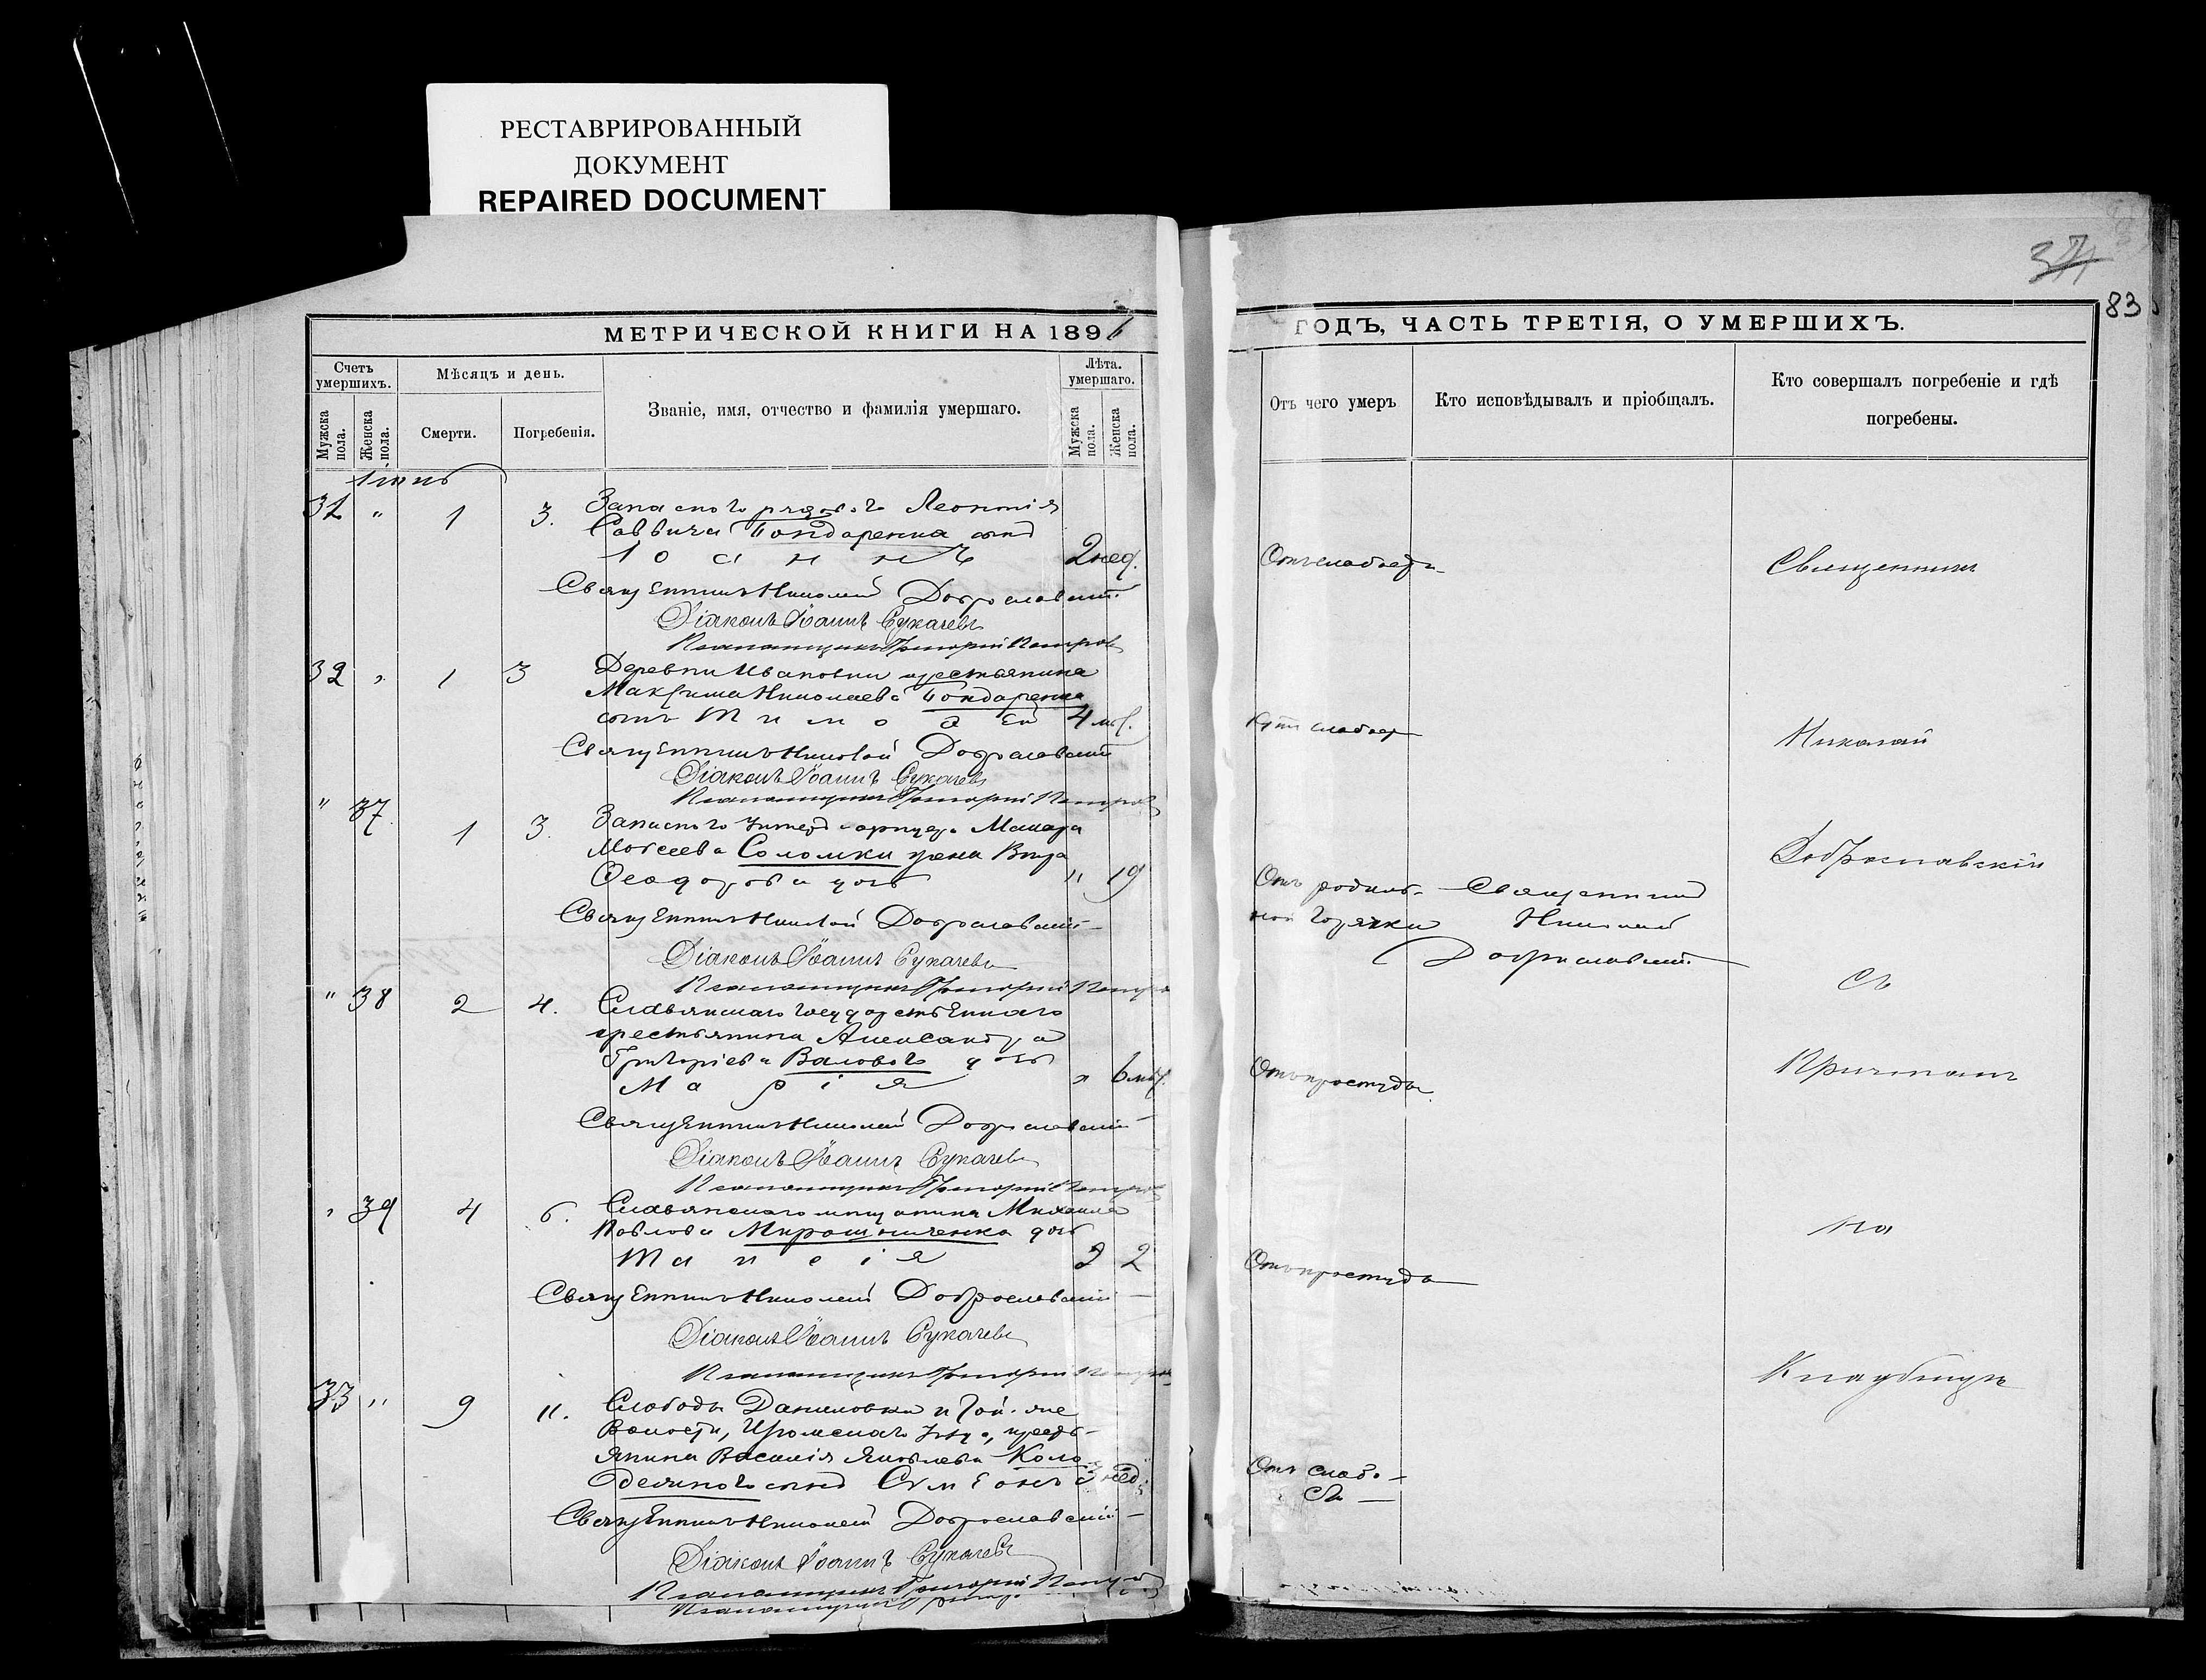 РЕСТАВРИРОВАННЫЙ
ДОКУМЕНТ
REPAIRED DOCUMENT
37
83
МЕТРИЧЕСКОЙ КНИГИ НА 1896
ГОДЪ, ЧАСТЬ ТРЕТІЯ, О УМЕРШИХЪ.
Счетъ умершихъ.
Мужска пола.
Женска пола.
Мѣсяцъ и день.
Смерти.
Погребенія.
Званіе, имя, отчество и фамилія умершаго.
Лѣта. умершаго.
Мужска пола.
Женска пола.
Отъ чего умеръ
Кто исповѣдывалъ и пріобщалъ.
Кто совершалъ погребеніе и гдѣ
погребены.
31 " 1 3. Запаснаго рядового Леонтія
Саввича Бондаренка сынъ
Іоаннъ 2 нед.
Отъ слабости
Священникъ
Священникъ Николай Доброславскій
Діаконъ Іоаннъ Сукачевъ
Псаломщикъ Григорій Петровъ
32 " 1 3 Деревни Ивановки крестьянина
Максима Николаева Бондаренка
сынъ Тимофей 4 мѣс.
Отъ слабос
Николай
Священникъ Николай Доброславскій
Діаконъ Іоаннъ Сукачевъ
Псаломщикъ Григорій Петровъ
" 37. 1 3. Запасного унтеръ-офицера Макара
Моисеева Соломки жена Вѣра
Феодорова дочь " 19
Отъ родиль-
ной горячки
Священникъ
Николай
Доброславскій
Доброславскій
Священникъ Николай Доброславскій
Діаконъ Іоаннъ Сукачевъ
Псаломщикъ Григорій Петровъ
съ
" 38 2 4. Славянскаго государственнаго
крестьянина Александра
Григоріева Валового дочь
Марія " 6 мѣс.
Отъ простуды
Причтомъ
Священникъ Николай Доброславскій
Діаконъ Іоаннъ Сукачевъ
Псаломщикъ Григорій Петровъ
" 39 4 6. Славянскаго мѣщанина Михаила
Павлова Мирошниченка дочь
Таисія 2
Отъ простуды
на
Священникъ Николай Доброславскій
Діаконъ Іоаннъ Сукачевъ
Псаломщикъ Григорій Петровъ
Кладбищѣ
33 " 9 11. Слободы Даниловки
волости, Изюмскаго уѣзда, кресть-
янина Василія Яковлева Коло-
дезяного сынъ Симеонъ 3 нед.
Отъ слабо-
сти
Священникъ Николай Доброславскій
Діаконъ Іоаннъ Сукачевъ
Псаломщикъ Григорій Петровъ